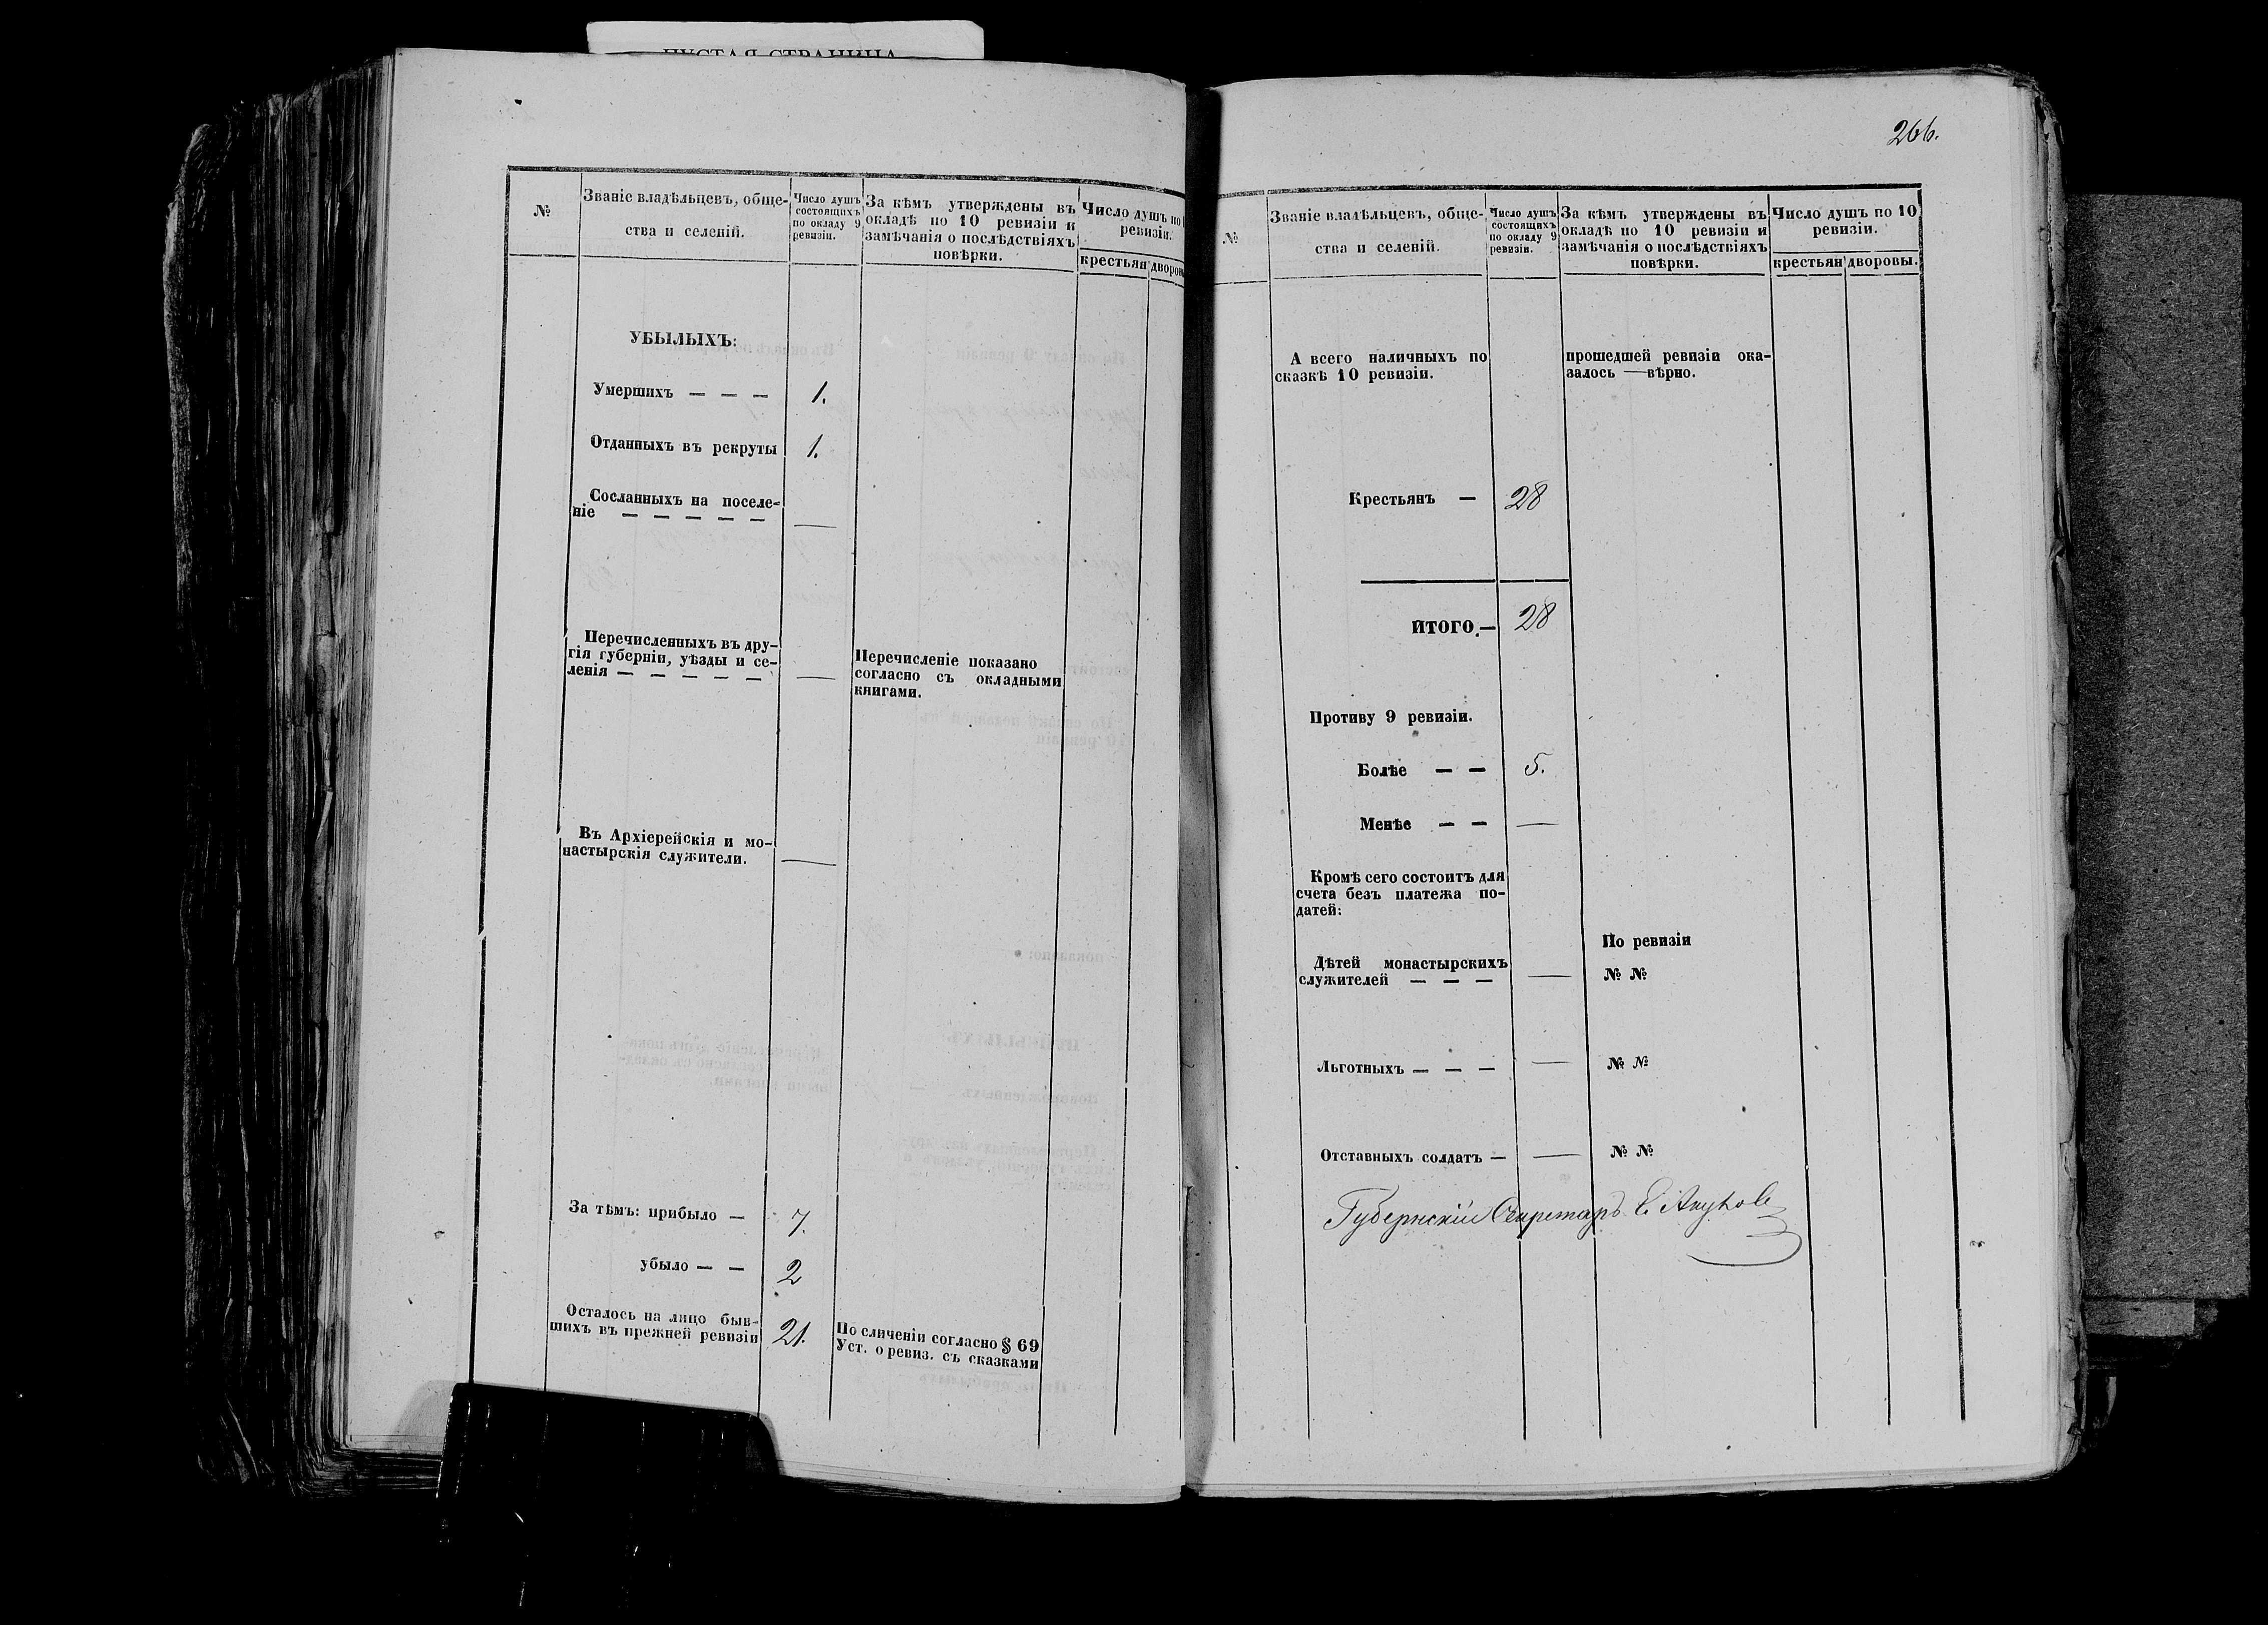 ПУСТАЯ СТРАНИЦА
№
Званіе владѣльцевъ, обще-
ства и селеній.
Число душъ
состоящихъ
по окладу 9
ревизіи.
За кѣмъ утверждены въ
окладѣ по 10 ревизіи и
замѣчанія о послѣдствіяхъ
повѣрки.
Число душъ по
ревизіи.
крестьян
дворовы
УБЫЛЫХЪ:
Умершихъ — — — 1.
Отданныхъ въ рекруты 1.
Сосланныхъ на поселе-
ніе — — — — — —
Перечисленныхъ въ дру-
гія губерніи, уѣзды и се-
ленія — — — — — —
Перечисленіе показано
согласно съ окладными
книгами.
Въ Архіерейскія и мо-
настырскія служители. —
За тѣмъ: прибыло — 7.
убыло — — 2
Осталось на лицо быв-
шихъ въ прежней ревизіи 21.
По сличеніи согласно § 69
Уст. о ревиз. съ сказками
266.
№
Званіе владѣльцевъ, обще-
ства и селеній.
Число душъ
состоящихъ
по окладу 9
ревизіи.
За кѣмъ утверждены въ
окладѣ по 10 ревизіи и
замѣчанія о послѣдствіяхъ
повѣрки.
Число душъ по 10
ревизіи.
крестьян
дворовы.
А всего наличныхъ по
сказкѣ 10 ревизіи.
прошедшей ревизіи ока-
залось — вѣрно.
Крестьянъ — 28
ИТОГО.— 28
Противу 9 ревизіи.
Болѣе — — 5.
Менѣе — — —
Кромѣ сего состоитъ для
счета безъ платежа по-
датей:
По ревизіи
Дѣтей монастырскихъ
служителей — — — —
№ №
Льготныхъ — — — — № №
Отставныхъ солдатъ — — № №
Губернскій Секретарь